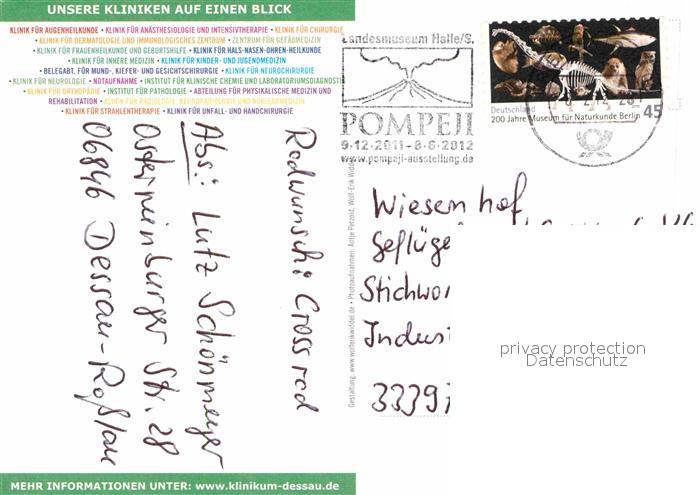 UNSERE KLINIKEN AUF EINEN BLICK
KLINIK FÜR AUGENHEILKUNDE • KLINIK FÜR ANÄSTHESIOLOGIE UND INTENSIVTHERAPIE • KLINIK FÜR CHIRURGIE
• KLINIK FÜR DERMATOLOGIE UND IMMUNOLOGISCHES ZENTRUM • ZENTRUM FÜR GEFÄSSMEDIZIN
• KLINIK FÜR FRAUENHEILKUNDE UND GEBURTSHILFE • KLINIK FÜR HALS-NASEN-OHREN-HEILKUNDE
• KLINIK FÜR INNERE MEDIZIN • KLINIK FÜR KINDER- UND JUGENDMEDIZIN
• BELEGABT. FÜR MUND-, KIEFER- UND GESICHTSCHIRURGIE • KLINIK FÜR NEUROCHIRURGIE
• KLINIK FÜR NEUROLOGIE • NOTAUFNAHME • INSTITUT FÜR KLINISCHE CHEMIE UND LABORATORIUMSDIAGNOSTIK
• KLINIK FÜR ORTHOPÄDIE • INSTITUT FÜR PATHOLOGIE • ABTEILUNG FÜR PHYSIKALISCHE MEDIZIN UND
REHABILITATION • KLINIK FÜR RADIOLOGIE, NEURORADIOLOGIE UND NUKLEARMEDIZIN
• KLINIK FÜR STRAHLENTHERAPIE • KLINIK FÜR UNFALL- UND HANDCHIRURGIE
Radwunsch: Crossrad
Abs.: Lutz Schönmeyer
Osternienburger Str. 28
06846 Dessau-Roßlau
MEHR INFORMATIONEN UNTER: www.klinikum-dessau.de
Gestaltung: www.wolferikwiddel.de • Photoaufnahmen: Antje Petzold, Wolf-Erik Widdel
Landesmuseum Halle/S.
POMPEJI
9.12.2011-8.6.2012
www.pompeji-ausstellung.de
Deutschland
200 Jahre Museum für Naturkunde Berlin
45
Wiesenhof
Geflüge
Stichwor
Indus
3339
privacy protection
Datenschutz